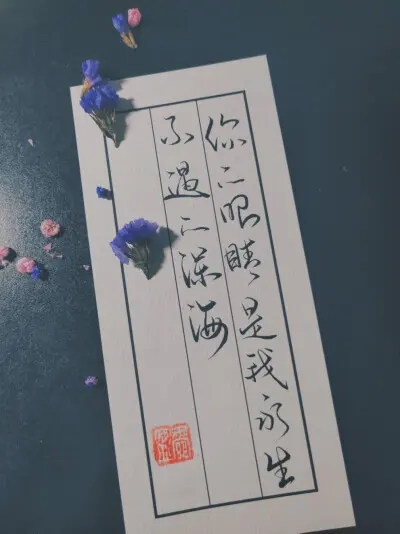 你的眼睛是我永生
不遇的深海